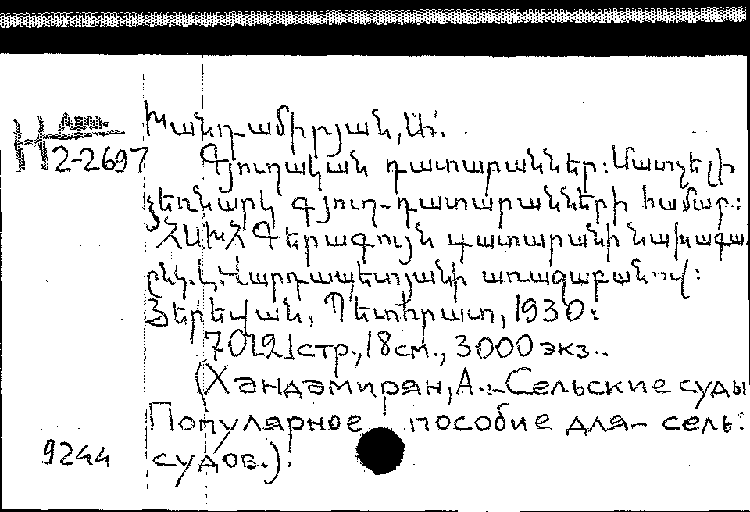 Խանդամիրյան, Ա.
H 2-2697
Գյուղական դատարաններ: Մատչելի
ձեռնարկ գյուղ-դատարանների համար:
ՀՍԽՀ Գերագույն դատարանի նախագա
ընկ. Վարդապետյանի առաջաբանով:
Յերեվան, Պետհրատ, 1930:
70[2]стр., 18см., 3000 экз..
(Хандамирян, А.-Сельские суды
Популярное пособие для сель.
9244 судов.).